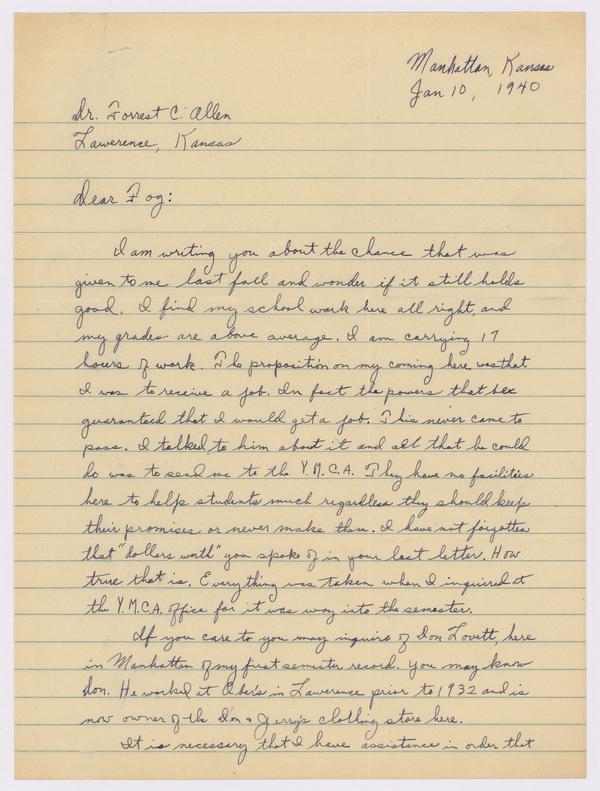 Manhattan, Kansas
Jan 10, 1940
Dr. Forrest C. Allen
Lawerence, Kansas
Dear Fog:
I am writing you about the chance that was
given to me last fall and wonder if it still holds
good. I find my school work here all right, and
my grades are above average. I am carrying 17
hours of work. The proposition on my coming here was that
I was to receive a job. In fact the powers that be
guaranteed that I would get a job. This never came to
pass. I talked to him about it and all that he could
do was to send me to the Y.M.C.A. They have no facilities
here to help students much regardless they should keep
their promises or never make them. I have not forgotten
that "dollars worth" you spoke of in your last letter. How
true that is. Everything was taken when I inquirred at
the Y.M.C.A. office for it was way into the semester.
If you care to you may inquire of Don Lovett, here
in Manhatten of my first semester record. You may know
Don. He worked at Ober's in Lawerence prior to 1932 and is
now owner of the Don & Jerry's clothing store here.
It is necessary that I have assistance in order that